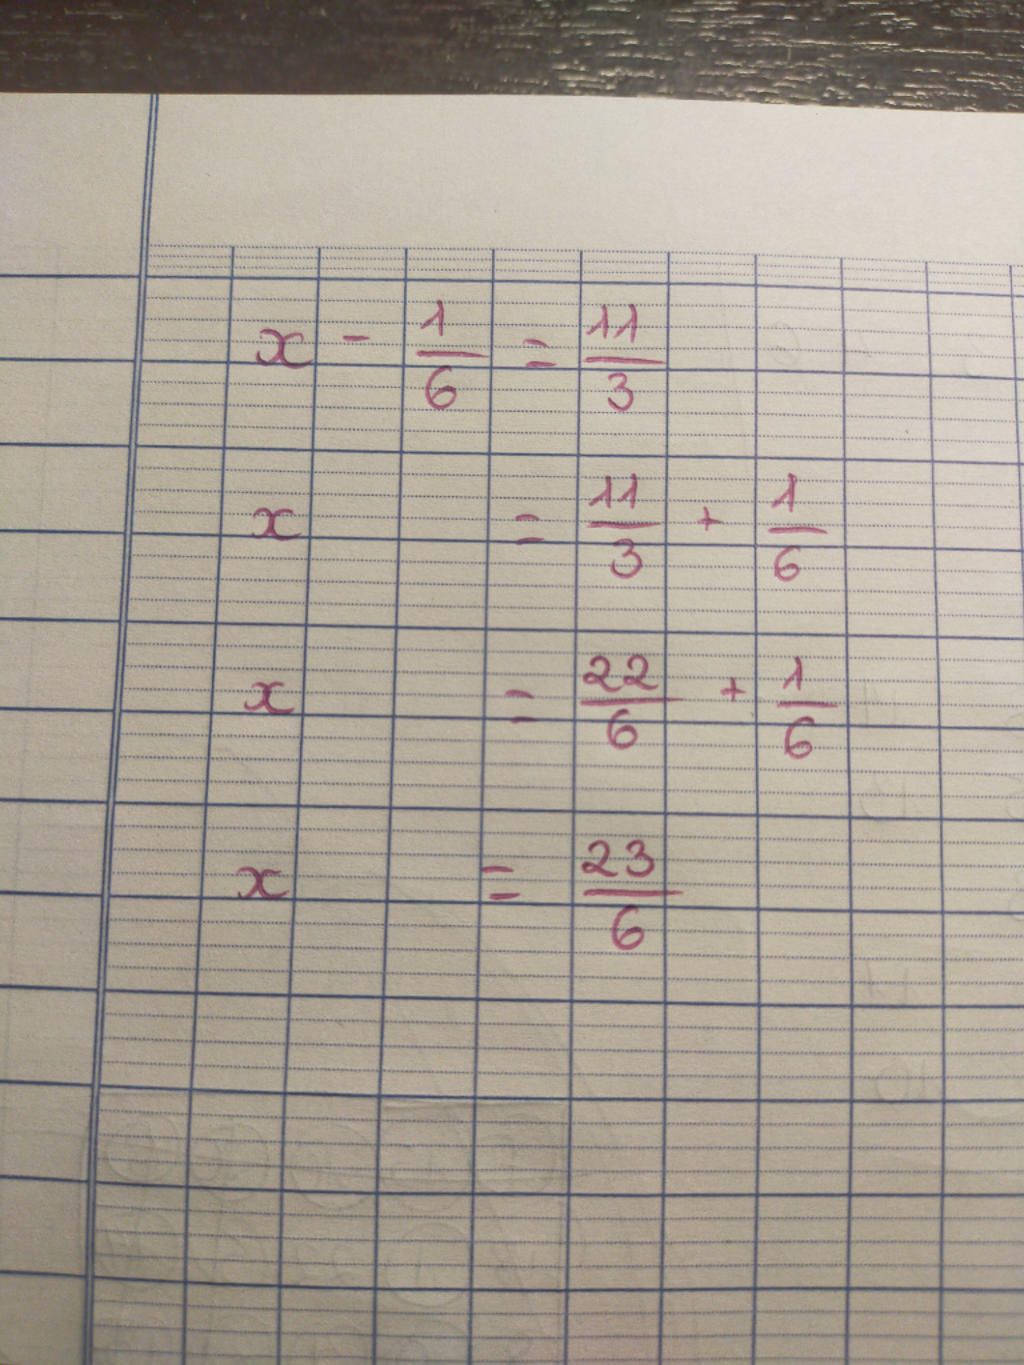 x - 1/6 = 11/3
x = 11/3 + 1/6
x = 22/6 + 1/6
x = 23/6